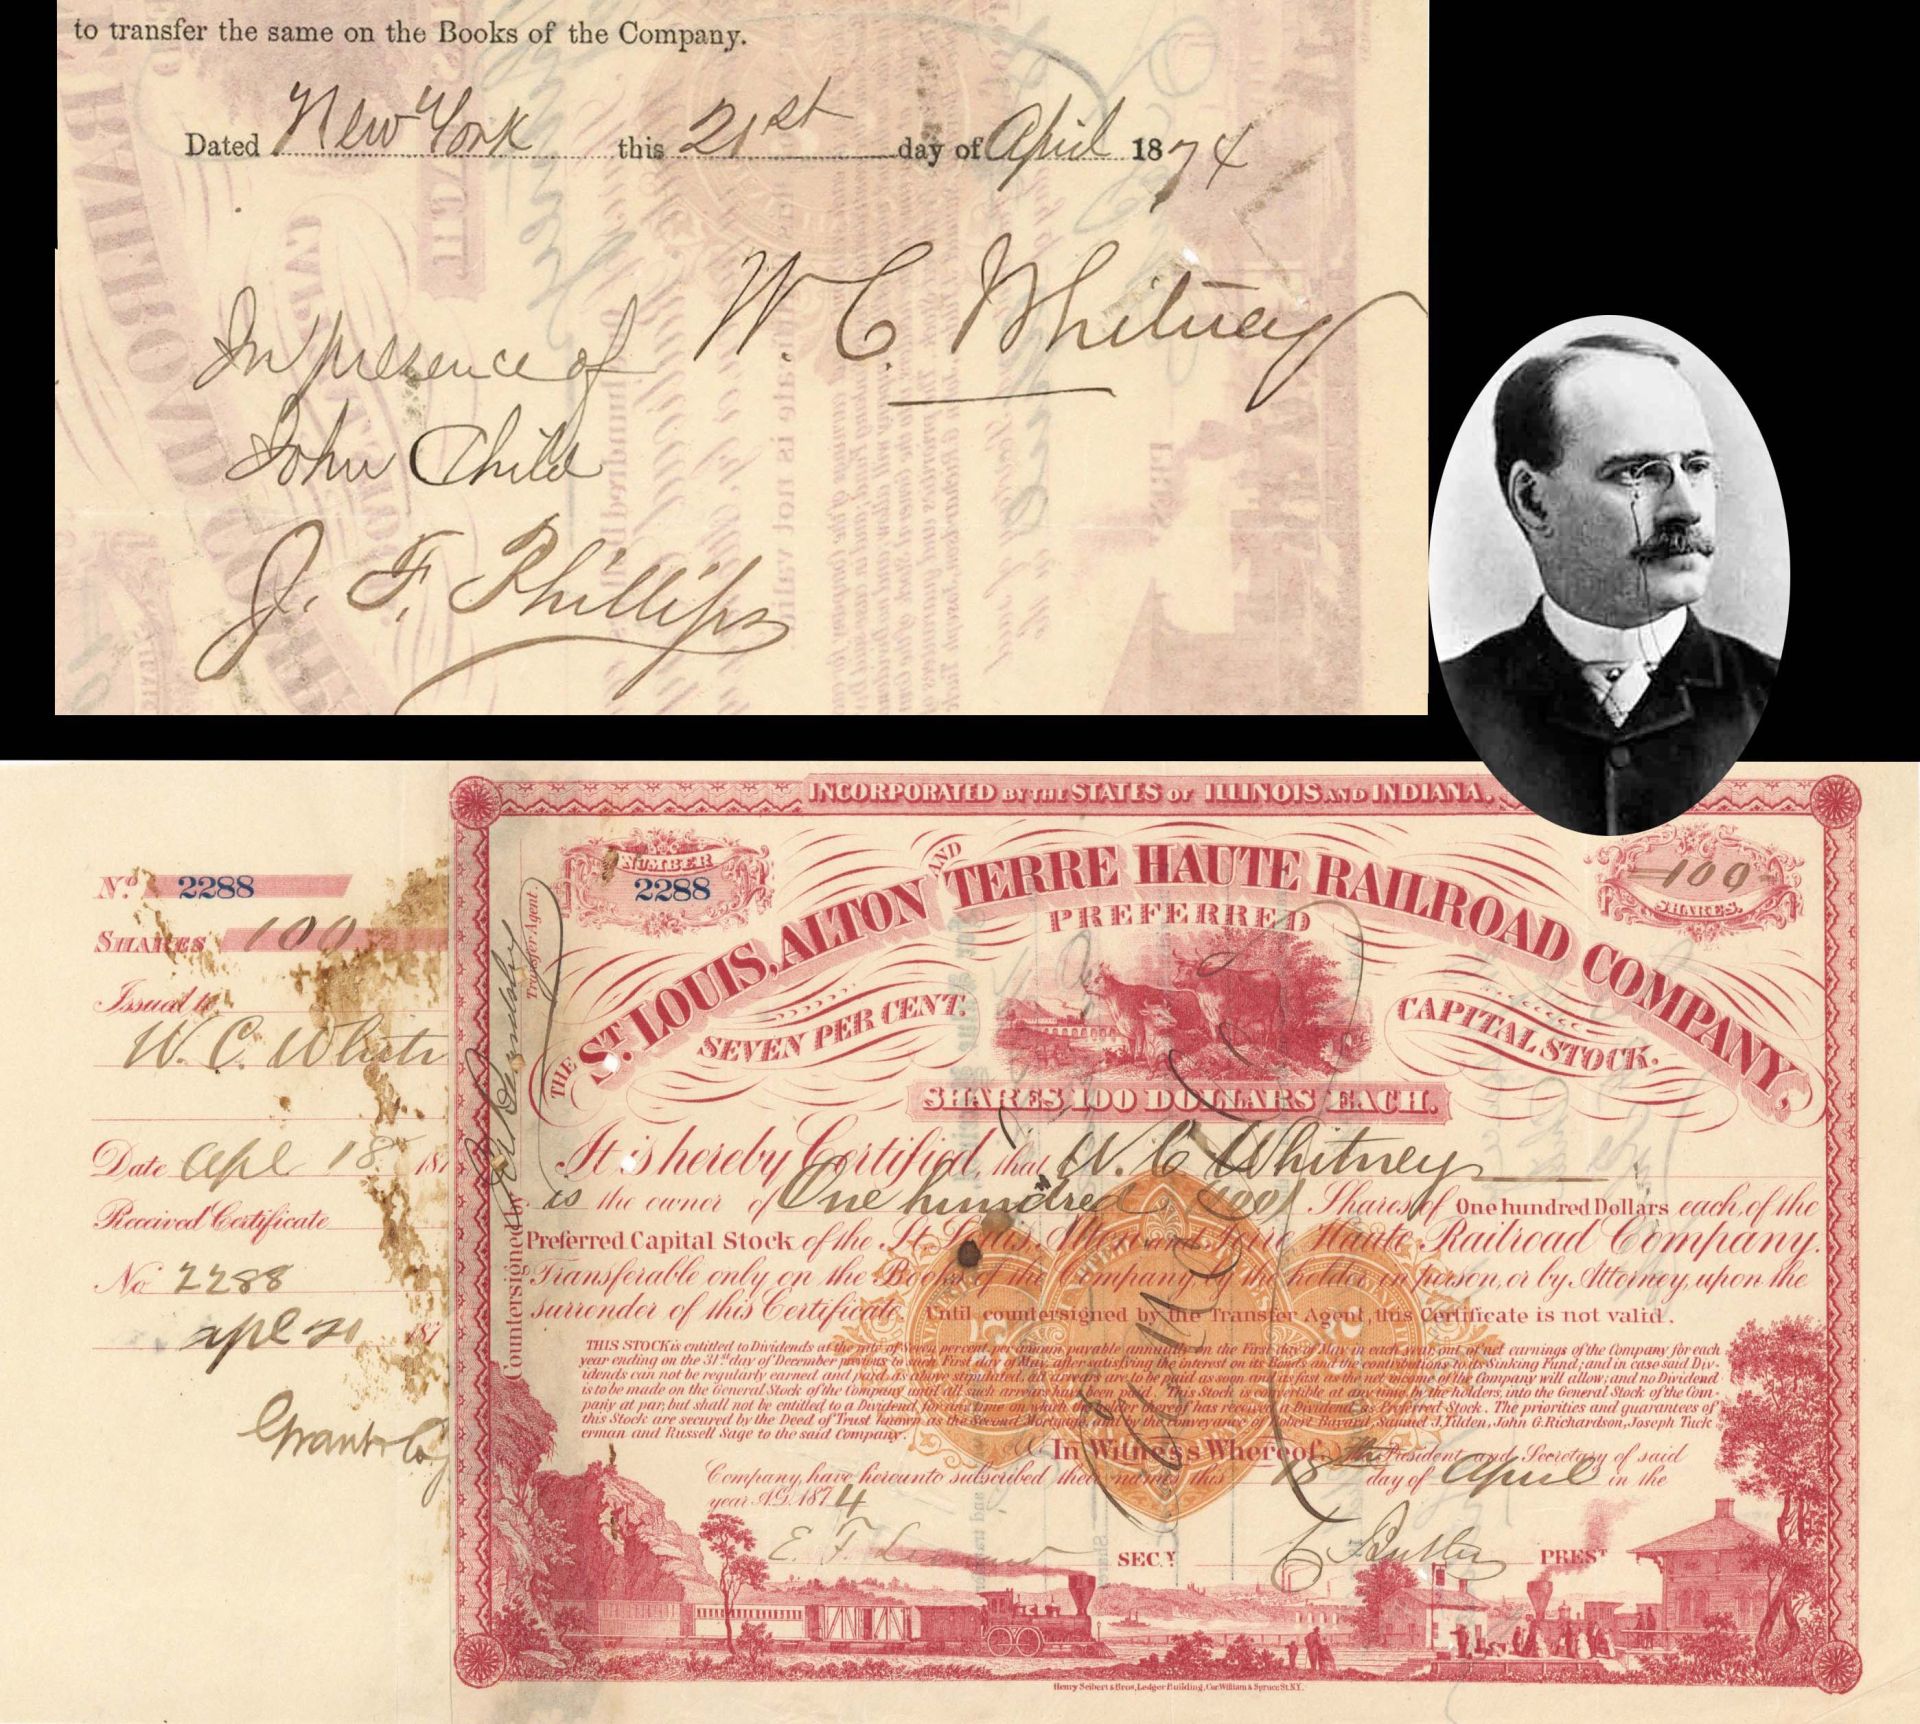 to transfer the same on the Books of the Company.
Dated New York this 21st day of April 1874
W. C. Whitney
In presence of
John Child
J. F. Phillips
No. 2288
SHARES 100
Issued to
W. C. White
Date Apl 18 187
Received Certificate
No 2288
apl 21 187
Grant & Co
Countersigned by
Transfer Agent.
INCORPORATED BY THE STATES OF ILLINOIS AND INDIANA.
NUMBER
2288
100
SHARES.
THE ST. LOUIS, ALTON AND TERRE HAUTE RAILROAD COMPANY,
PREFERRED
SEVEN PER CENT. CAPITAL STOCK.
SHARES 100 DOLLARS EACH.
It is hereby Certified, that W. C. Whitney
is the owner of One hundred (100) Shares of One hundred Dollars each, of the
Preferred Capital Stock of the St. Louis, Alton and Terre Haute Railroad Company.
Transferable only on the Books of the Company by the holder in person, or by Attorney, upon the
surrender of this Certificate. Until countersigned by the Transfer Agent, this Certificate is not valid.
THIS STOCK is entitled to Dividends at the rate of Seven percent, per annum payable annually on the First day of May in each year, out of net earnings of the Company for each
year ending on the 31st day of December previous to such First day of May, after satisfying the interest on its Bonds and the contributions to its Sinking Fund; and in case said Div-
idends can not be regularly earned and paid, as above stipulated, all arrears are to be paid as soon and as fast as the net income of the Company will allow; and no Dividend
is to be made on the General Stock of the Company until all such arrears have been paid. This Stock is convertible at any time, by the holders, into the General Stock of the Com-
pany at par, but shall not be entitled to a Dividend, for any time on which the holder thereof has received a Dividend as Preferred Stock. The priorities and guarantees of
this Stock are secured by the Deed of Trust known as the Second Mortgage, and by the conveyance of Robert Bayard, Samuel J. Tilden, John G. Richardson, Joseph Tuck
erman and Russell Sage to the said Company.
In Witness Whereof, the President and Secretary of said
Company, have hereunto subscribed their names this 18th day of April in the
year A.D. 1874
E. F. Leonard SECY. C Butler PREST
Henry Seibert & Bros, Ledger Building, Cor. William & Spruce St. N.Y.